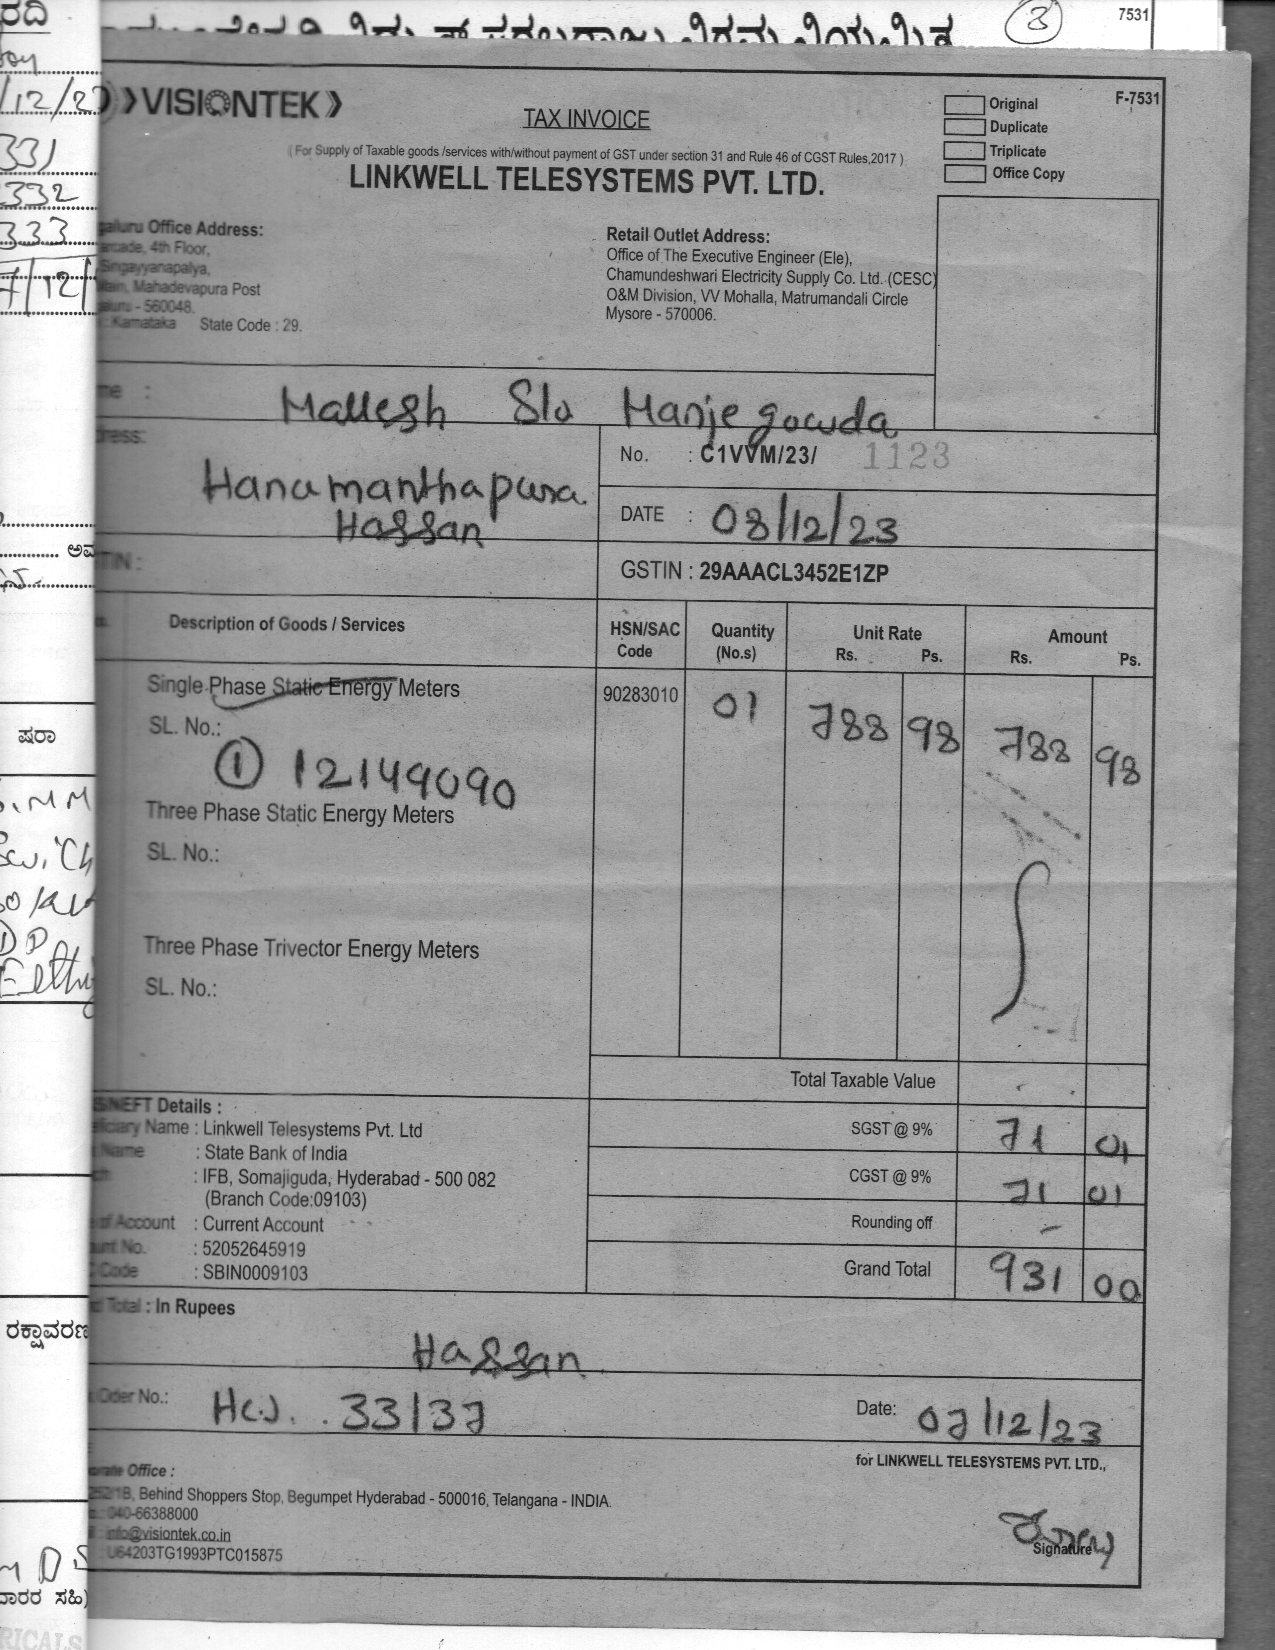 7531
3
F-7531
VISIONTEK
TAX INVOICE
Original
Duplicate
Triplicate
Office Copy
( For Supply of Taxable goods /services with/without payment of GST under section 31 and Rule 46 of CGST Rules,2017 )
LINKWELL TELESYSTEMS PVT. LTD.
Office Address:
4th Floor,
Singayyanapalya,
Mahadevapura Post
- 560048.
: Karnataka State Code : 29.
Retail Outlet Address:
Office of The Executive Engineer (Ele),
Chamundeshwari Electricity Supply Co. Ltd. (CESC)
O&M Division, VV Mohalla, Matrumandali Circle
Mysore - 570006.
Mallesh S/o Manjegowda
Hanumanthapura
Hassan
No. : C1VVM/23/ 1123
DATE : 08/12/23
GSTIN : 29AAACL3452E1ZP
Description of Goods / Services HSN/SAC Code Quantity (No.s) Unit Rate Rs. Ps. Amount Rs. Ps.
Single Phase Static Energy Meters 90283010 01 788 98 788 98
SL. No.:
① 12149090
Three Phase Static Energy Meters
SL. No.:
Three Phase Trivector Energy Meters
SL. No.:
Total Taxable Value
SGST @ 9% 71 01
CGST @ 9% 71 01
Rounding off -
Grand Total 931 00
NEFT Details :
Name : Linkwell Telesystems Pvt. Ltd
Name : State Bank of India
: IFB, Somajiguda, Hyderabad - 500 082
(Branch Code:09103)
of Account : Current Account
No. : 52052645919
Code : SBIN0009103
Total : In Rupees
Hassan
Order No.: 33/37 Date: 07/12/23
for LINKWELL TELESYSTEMS PVT. LTD.,
Office :
Behind Shoppers Stop, Begumpet Hyderabad - 500016, Telangana - INDIA.
040-66388000
info@visiontek.co.in
U64203TG1993PTC015875
Signature
331
332
333
ಷರಾ
ರಕ್ಷಾವರಣ
ಸಹಿ)